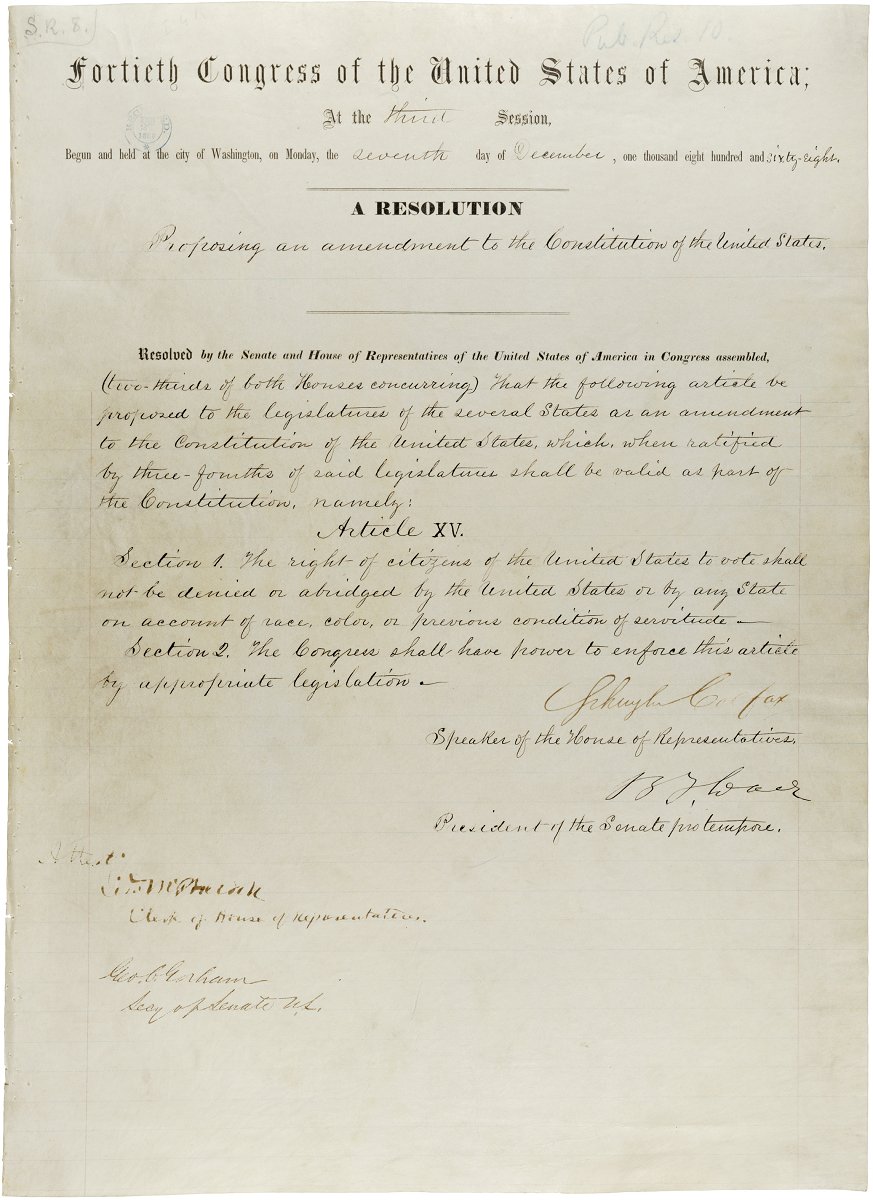 S.R. 8.
Pub. Res. 10
Fortieth Congress of the United States of America;
At the third Session,
Begun and held at the city of Washington, on Monday, the seventh day of December, one thousand eight hundred and sixty-eight.
A RESOLUTION
Proposing an amendment to the Constitution of the United States.
Resolved by the Senate and House of Representatives of the United States of America in Congress assembled,
(two-thirds of both Houses concurring) That the following article be
proposed to the legislatures of the several States as an amendment
to the Constitution of the United States, which, when ratified
by three-fourths of said legislatures shall be valid as part of
the Constitution, namely:
Article XV.
Section 1. The right of citizens of the United States to vote shall
not be denied or abridged by the United States or by any State
on account of race, color, or previous condition of servitude—
Section 2. The Congress shall have power to enforce this article
by appropriate legislation—
Schuyler Colfax
Speaker of the House of Representatives.
B F Wade
President of the Senate pro tempore.
Attest:
McPherson
Clerk of House of Representatives.
Geo. C. Gorham
Secy of Senate U.S.